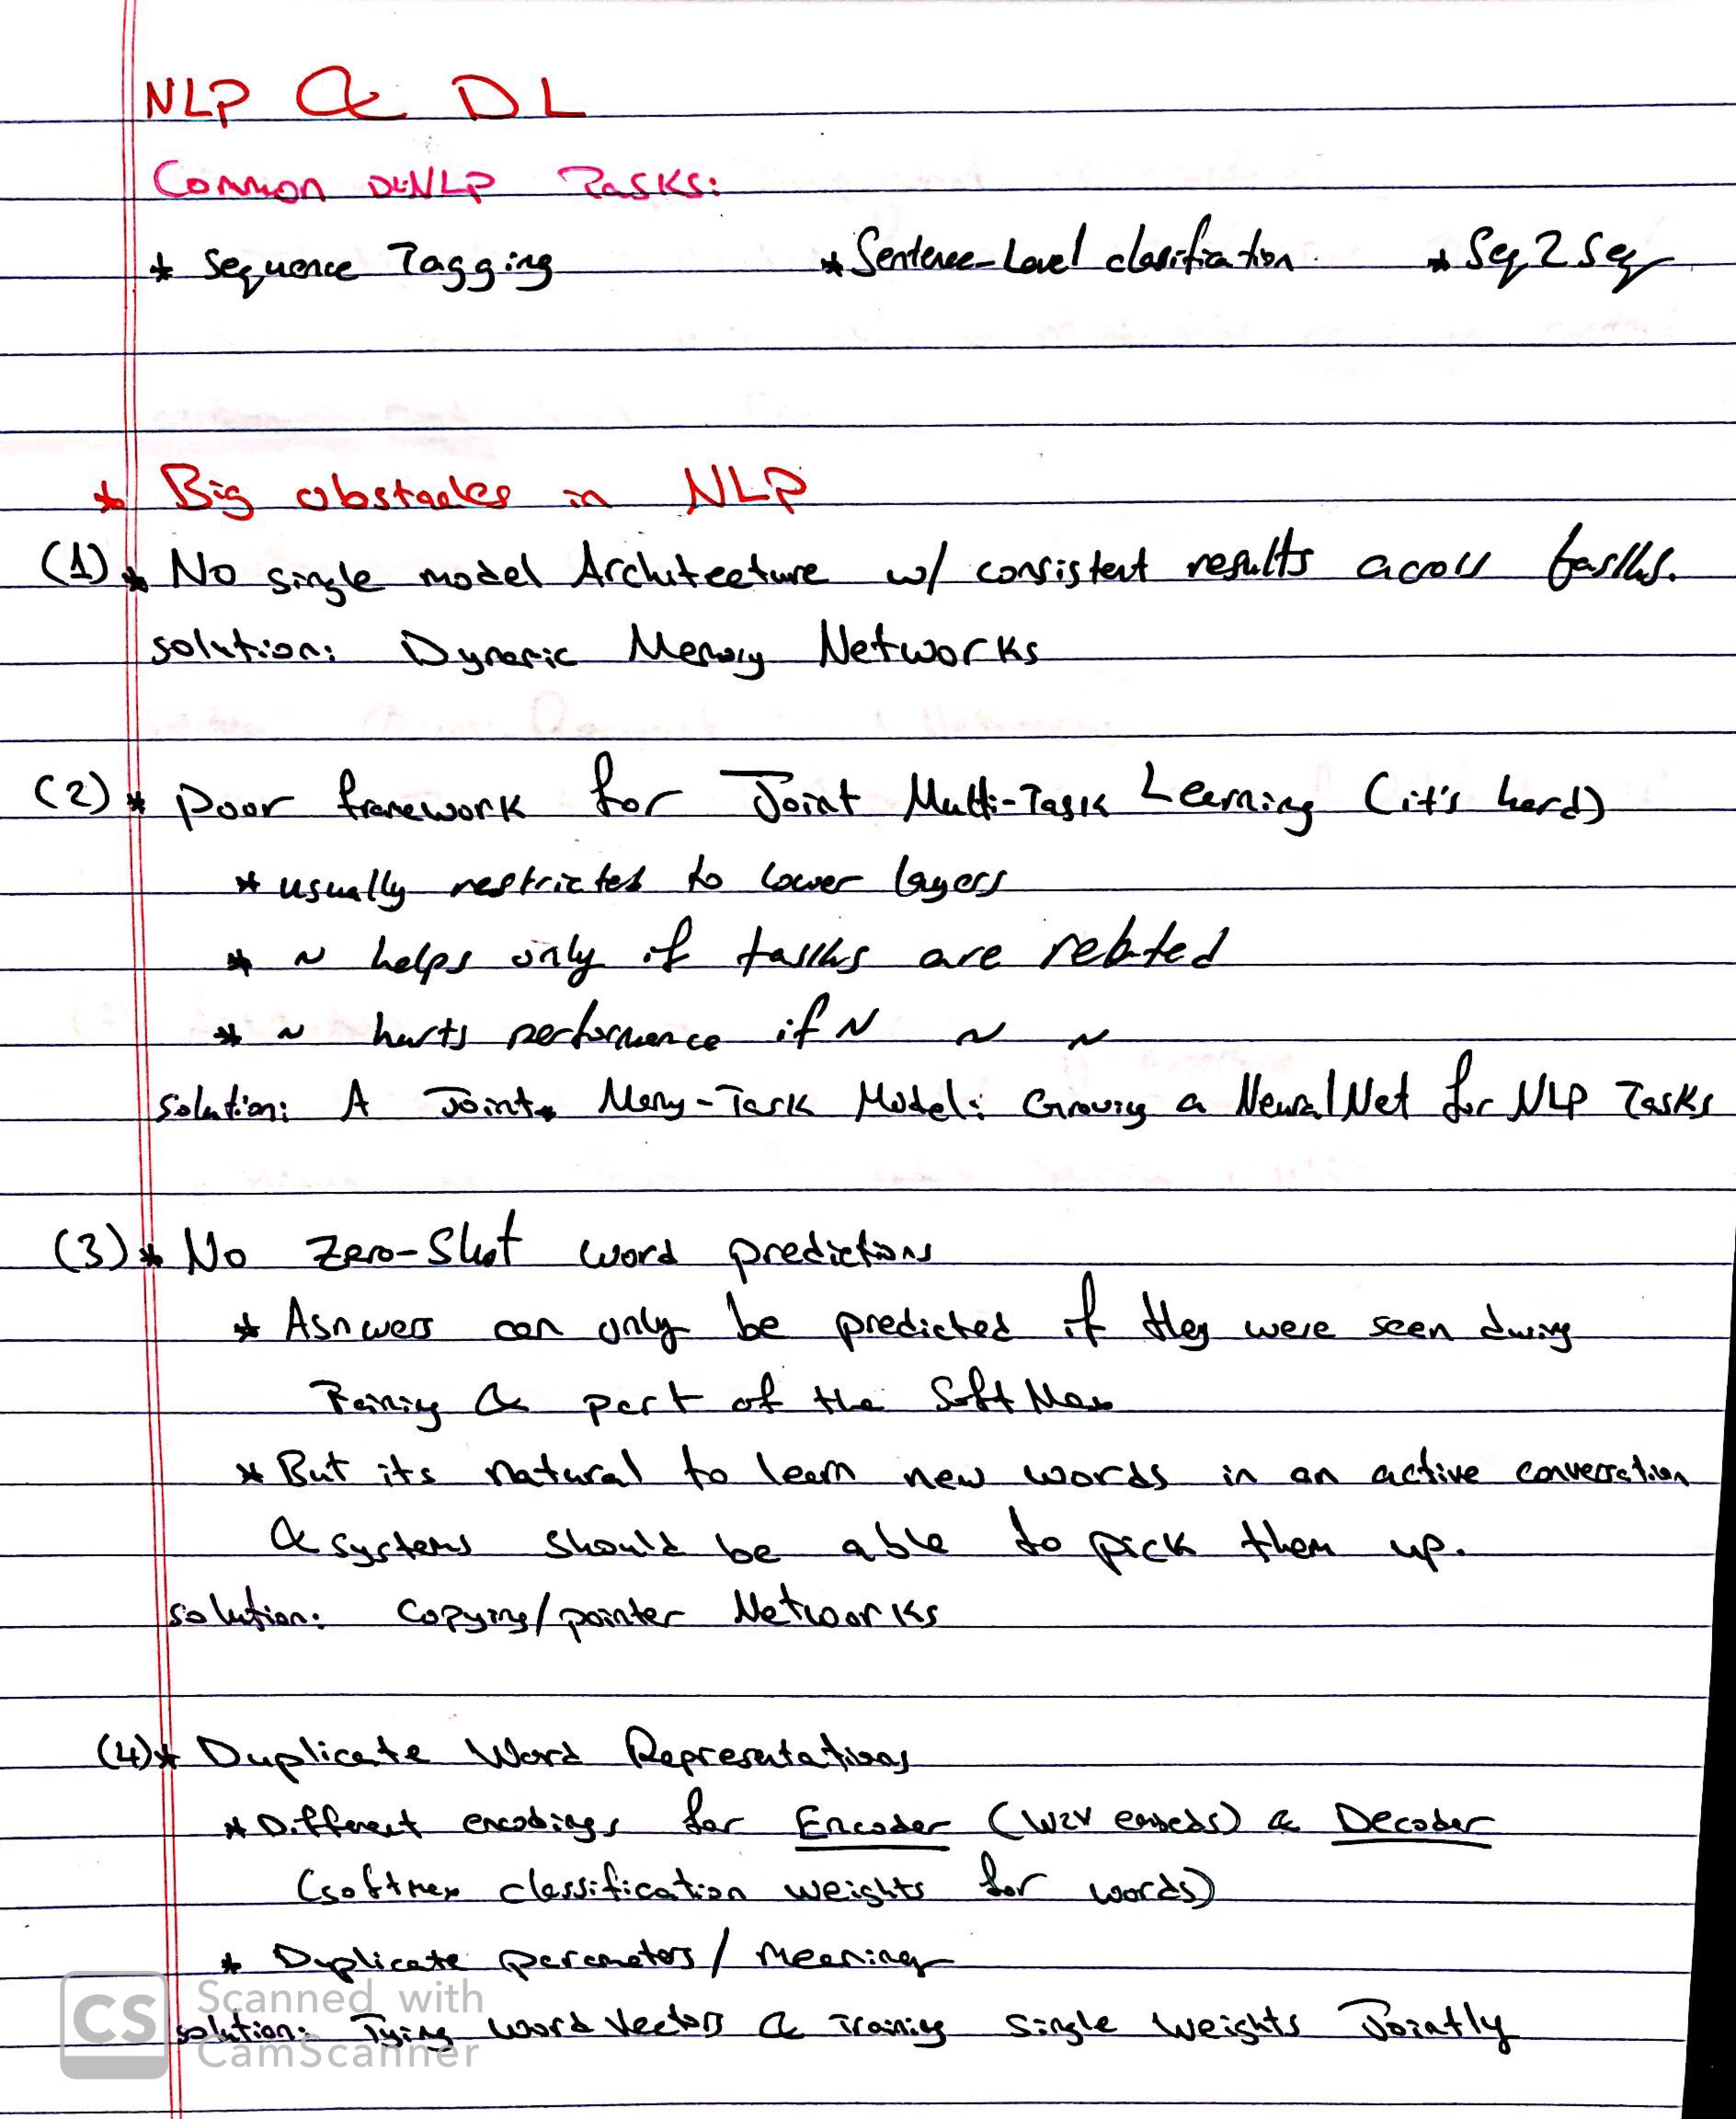 NLP & DL
Common DL-NLP Tasks:
* Sequence Tagging * Sentence-Level clasification * Seq2Seq
* Big obstacles in NLP
(1) * No single model Architecture w/ consistent results across tasks.
solution: Dynamic Memory Networks
(2) * Poor framework for Joint Multi-Task Learning (it's hard)
* usually restricted to lower layers
* ~ helps only if tasks are related
* ~ hurts performance if ~ ~ ~
solution: A Joint Many-Task Model: Growing a Neural Net for NLP Tasks
(3) * No Zero-Shot word predictions
* Asnwers can only be predicted if they were seen during
Training & part of the SoftMax
* But its natural to learn new words in an active conversation
& systems should be able to pick them up.
solution: Copying/pointer Networks
(4) * Duplicate Word Representations
* Different encodings for Encoder (W2V embeds) & Decoder
(softmax classification weights for words)
* Duplicate parameters / Meaning
solution: Tying word Vectors & Training single Weights Jointly
CS Scanned with
CamScanner